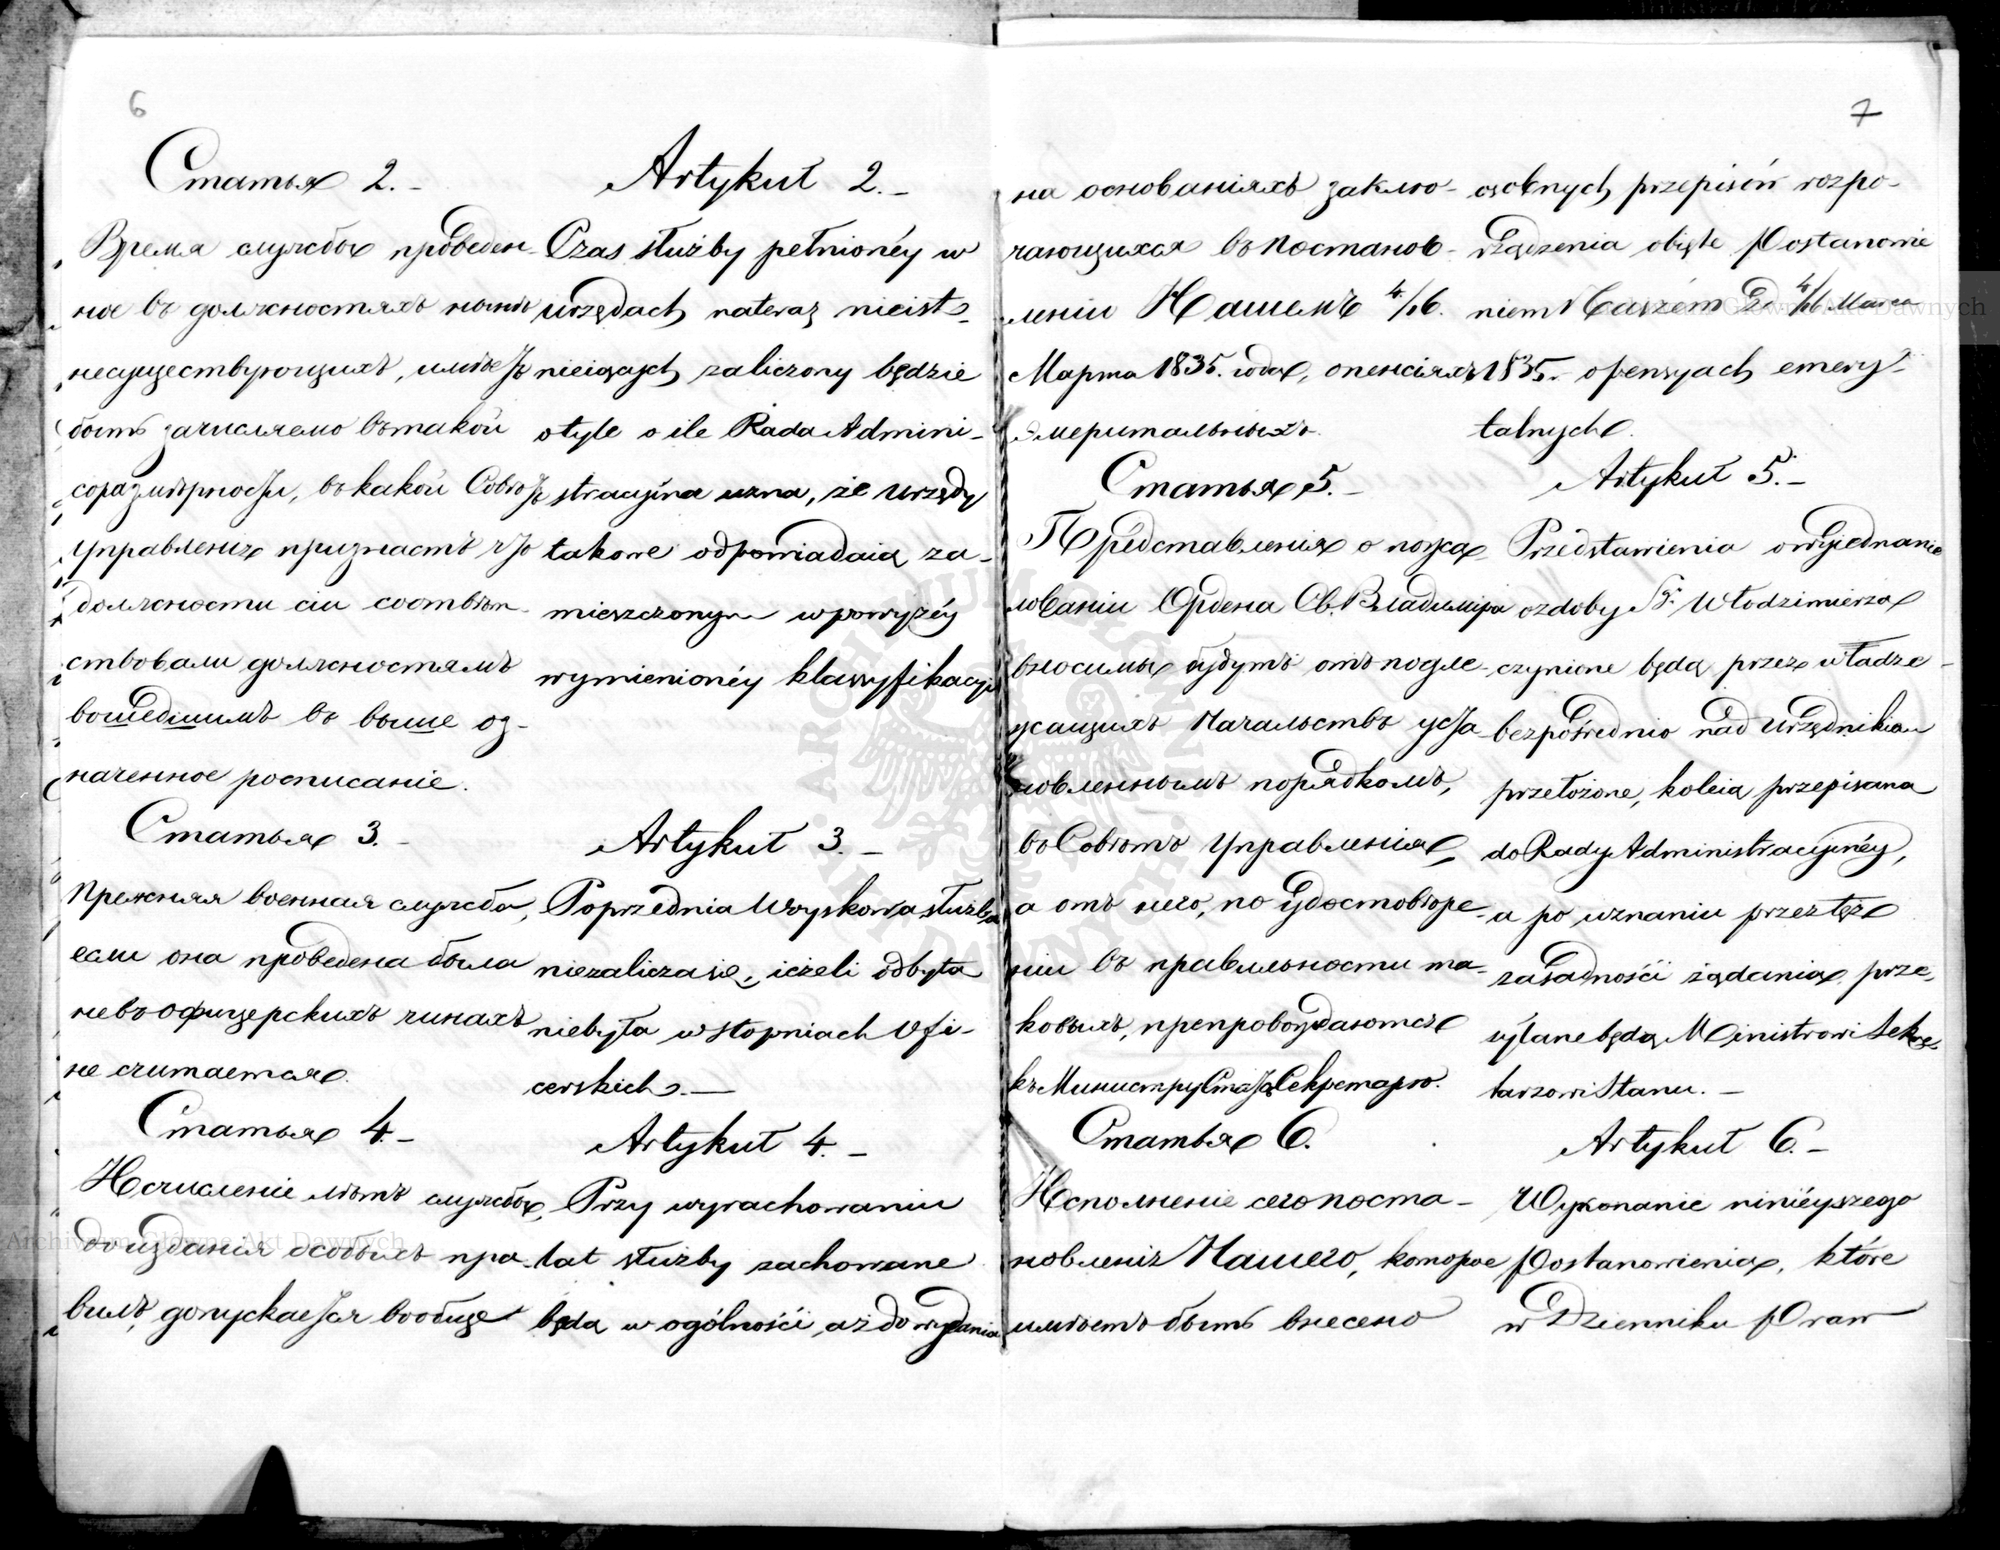 6
Статья 2.-
Время службы проведен-
ное въ должностяхъ нынѣ
несуществующихъ, имѣетъ
быть зачисляемо въ такой
соразмѣрности, въ какой Совѣтъ
Управленія признаетъ что
должности сіи соотвѣт-
ствовали должностямъ
вошедшимъ въ выше оз-
наченное росписаніе.
Статья 3.-
Прежняя военная служба,
если она проведена была
не въ офицерскихъ чинахъ
не считается.
Статья 4.-
Исчисленіе лѣтъ службы,
до изданія особыхъ пра-
вилъ, допускается вообще
Artykuł 2.-
Czas służby pełnionéy w
urzędach nateraz nieist-
nieiących zaliczony będzie
o tyle o ile Rada Admini-
stracyina uzna, że urzędy
takowe odpowiadaią za-
mieszczonym w powyżéy
wymienionéy klassyfikacyi
Artykuł 3.-
Poprzednia Woyskowa służba
niezalicza się, ieżeli odbyta
niebyła w stopniach Ofi-
cerskich.-
Artykuł 4.-
Przy wyrachowaniu
lat służby zachowane
będą w ogólności, aż do wydania
7
на основаніяхъ заклю-
чающихся въ Постанов-
леніи Нашемъ 4/16.
Марта 1835. года, о пенсіяхъ
эмеритальныхъ.
Статья 5.-
Представленія о пожа-
лованіи Ордена Св. Владиміра
вносимы будутъ отъ подле-
жащихъ Начальствъ уста-
новленнымъ порядкомъ,
въ Совѣтъ Управленія,
а отъ него, по удостовѣре-
ніи въ правильности та-
ковыхъ, препровождаются
къ Министру Статсъ Секретарю.
Статья 6.
Исполненіе сего поста-
новленія Нашего, которое
имѣетъ быть внесено
osobnych przepisów rozpo-
rządzenia obięte Postanowie
niem Naszém d 4/16 Marca
1835. o pensyach emery-
talnych.
Artykuł 5.-
Przedstawienia o wyiednanie
ozdoby Sgo Włodzimierza
czynione będą przez władze
bezpośrednio nad Urzędnikiem
przełożone, koleią przepisaną
do Rady Administracyinéy,
a po uznaniu przez tęż
zasadności żądania, prze-
syłane będą Ministrowi Sekre-
tarzowi Stanu.-
Artykuł 6.-
Wykonanie ninieyszego
Postanowienia, które
w Dzienniku Praw